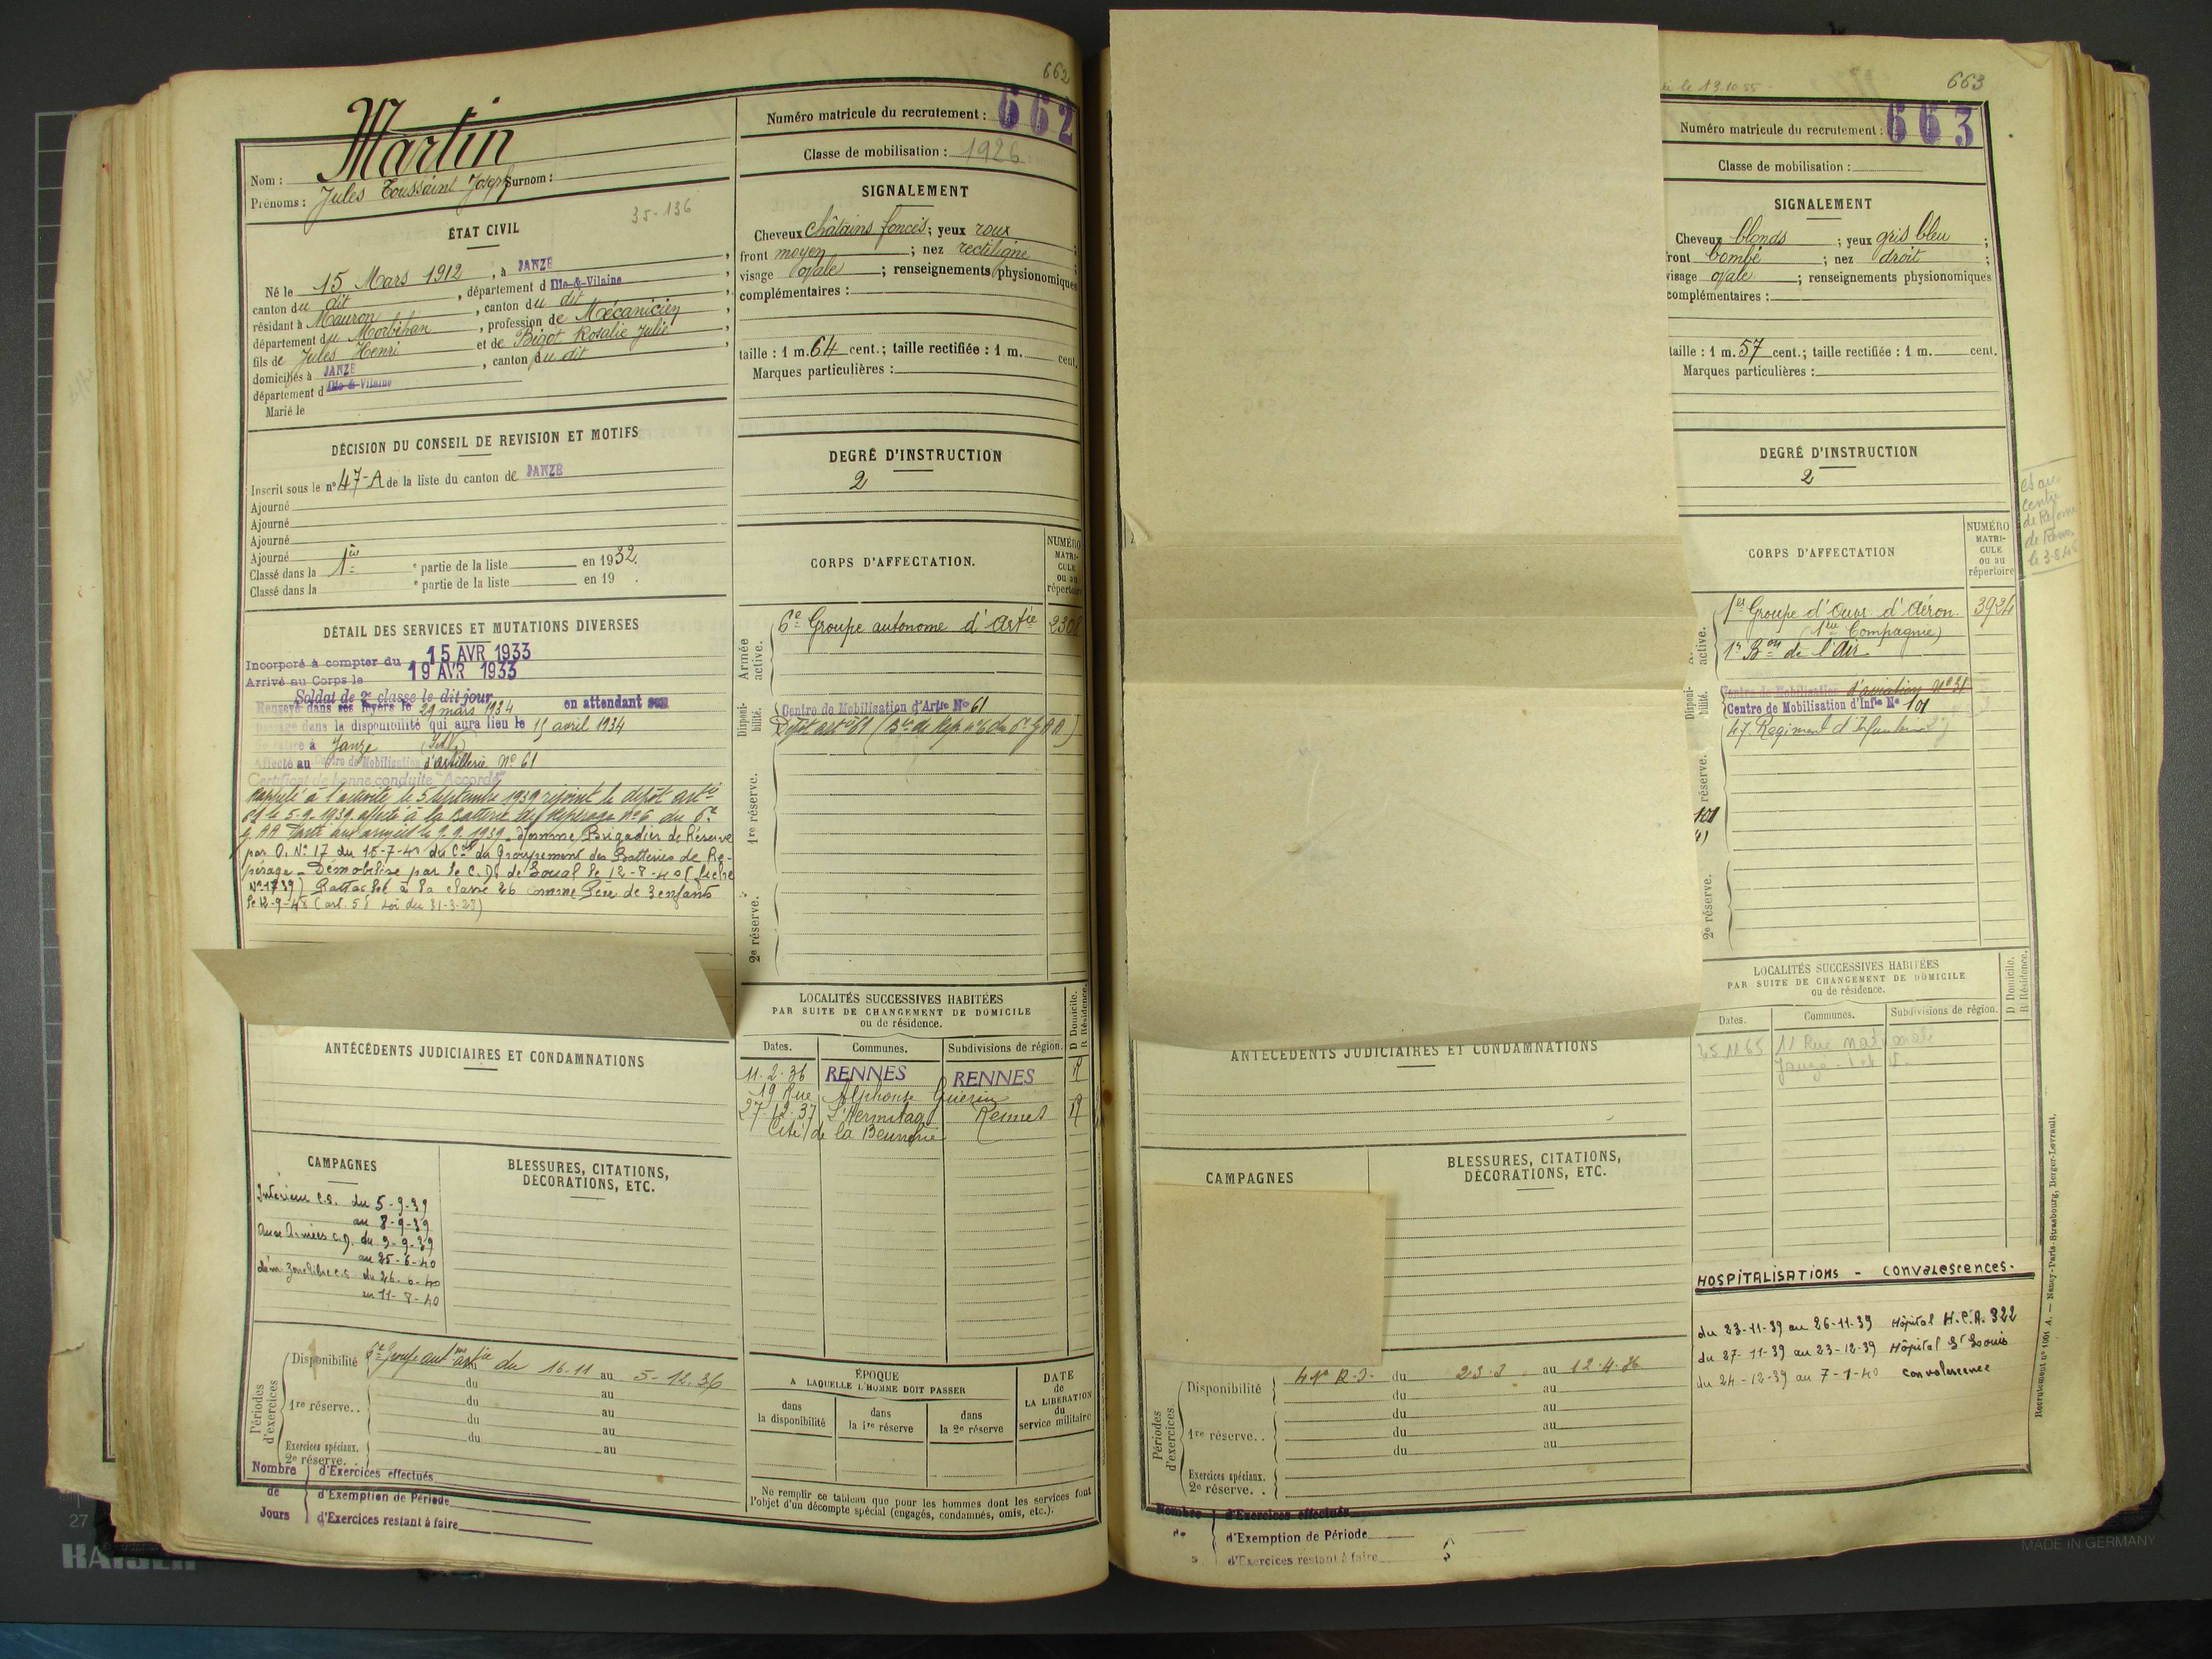 662
Martin
Nom :
Prénoms : Jules Toussaint Joseph Surnom :
35-136
ÉTAT CIVIL
Né le 15 Mars 1912, à JANZÉ,
canton du dit, département d'Ille-&-Vilaine
résidant à Mauron, canton du dit,
département du Morbihan, profession de Mécanicien,
fils de Jules Henri et de Bigot Rosalie Julie,
domiciliés à JANZÉ, canton du dit
département d'Ille-&-Vilaine
Marié le
DÉCISION DU CONSEIL DE REVISION ET MOTIFS
Inscrit sous le n° 47-A de la liste du canton de JANZÉ
Ajourné
Ajourné
Ajourné
Ajourné
Classé dans la 1re e partie de la liste en 1932.
Classé dans la e partie de la liste en 19 .
DÉTAIL DES SERVICES ET MUTATIONS DIVERSES
Incorporé à compter du 15 AVR 1933
Arrivé au Corps le 19 AVR 1933
Soldat de 2e classe le dit jour
Renvoyé dans ses foyers le 29 mars 1934 en attendant son
passage dans la disponibilité qui aura lieu le 15 avril 1934
Se retire à Janzé (I et V)
Affecté au Centre de Mobilisation d'artillerie N° 61
Certificat de bonne conduite "Accordé"
Rappelé à l'activité le 5 septembre 1939 rejoint le dépôt artie
61 le 5-9-1939 affecté à la Batterie de Repérage N° 6 du 6e
g. AA Parti aux armées le 9.9.1939. Nommé Brigadier de Réserve
par O. N° 17 du 15-7-40 du Ct du Groupement des Batteries de Re-
pérage - Démobilisé par le C.D. de Soual le 12-8-40 (fiche
N° 1739) Rattaché à la classe 26 comme Père de 3 enfants
le 12-9-45 (art. 58 Loi du 31-3-28)
ANTÉCÉDENTS JUDICIAIRES ET CONDAMNATIONS
CAMPAGNES
Intérieur C.S. du 5-9-39
au 8-9-39
Aux Armées C.D. du 9-9-39
au 25-6-40
dém. Zone libre C.S. du 26-6-40
au 11-8-40
BLESSURES, CITATIONS,
DÉCORATIONS, ETC.
Périodes d'exercices
Disponibilité 6e Groupe autme artie du 16-11 au 5-12.36
du au
1re réserve.. du au
du au
du au
Exercices spéciaux.
2e réserve. .
Nombre de Jours
d'Exercices effectués
d'Exemption de Période
d'Exercices restant à faire
Numéro matricule du recrutement : 662
Classe de mobilisation : 1926
SIGNALEMENT
Cheveux châtains foncés ; yeux roux ;
front moyen ; nez rectiligne ;
visage ovale ; renseignements physionomiques
complémentaires :
taille : 1 m. 64 cent.; taille rectifiée : 1 m. cent.
Marques particulières :
DEGRÉ D'INSTRUCTION
2
CORPS D'AFFECTATION.
NUMÉRO
MATRI-
CULE
ou au
répertoire
Armée active.
6e Groupe autonome d'Artie 2308
Disponi-bilité.
Centre de Mobilisation d'Artie N° 61
Dépôt art° 61 (Bie de Rep. n° 6 du 6e g AA)
1re réserve.
2e réserve.
LOCALITÉS SUCCESSIVES HABITÉES
PAR SUITE DE CHANGEMENT DE DOMICILE
ou de résidence.
D Domicile.
R Résidence.
Dates. Communes. Subdivisions de région.
11.2.36 RENNES RENNES R
19 Rue Alphonse Guérin
27.12.37 L'Hermitage Rennes R
Cité de la
ÉPOQUE
A LAQUELLE L'HOMME DOIT PASSER
dans la disponibilité
dans la 1re réserve
dans la 2e réserve
DATE
de
LA LIBÉRATION
du
service militaire
Ne remplir ce tableau que pour les hommes dont les services font
l'objet d'un décompte spécial (engagés, condamnés, omis, etc.).
le 13.10.55
663
Numéro matricule du recrutement : 663
Classe de mobilisation :
SIGNALEMENT
Cheveux blonds ; yeux gris bleu ;
front bombé ; nez droit ;
visage ovale ; renseignements physionomiques
complémentaires :
taille : 1 m. 57 cent.; taille rectifiée : 1 m. cent.
Marques particulières :
DEGRÉ D'INSTRUCTION
2
centre
de Réforme
de Rennes
CORPS D'AFFECTATION
NUMÉRO
MATRI-
CULE
ou au
répertoire
active.
1er Groupe d'Ouvr. d'Aéron. 3924
(1re Compagnie)
1r Bon de l'Air
Disponi-bilité.
Centre de Mobilisation d'aviation N° 31
Centre de Mobilisation d'Infie N° 101
47 Régiment d'Infanterie
réserve.
101
2e réserve.
LOCALITÉS SUCCESSIVES HABITÉES
PAR SUITE DE CHANGEMENT DE DOMICILE
ou de résidence.
D Domicile.
R Résidence.
Dates. Communes. Subdivisions de région.
25 11 65 11 Rue nationale
Janzé I et V.
ANTÉCÉDENTS JUDICIAIRES ET CONDAMNATIONS
CAMPAGNES
BLESSURES, CITATIONS,
DÉCORATIONS, ETC.
HOSPITALISATIONS - Convalescences.
du 23-11-39 au 26-11-39 Hôpital H.C.A. 322
du 27-11-39 au 23-12-39 Hôpital St Louis
du 24-12-39 au 7-1-40 convalescence
Périodes d'exercices.
Disponibilité 41e R.I. du 23.3 au 12.4.36
du au
du au
1re réserve. . du au
du au
Exercices spéciaux.
2e réserve. .
Nombre
d'Exercices effectués
d'Exemption de Période
d'Exercices restant à faire
Recrutement n° 1001 A. — Nancy-Paris-Strasbourg, Berger-Levrault.
27
KAISER
MADE IN GERMANY